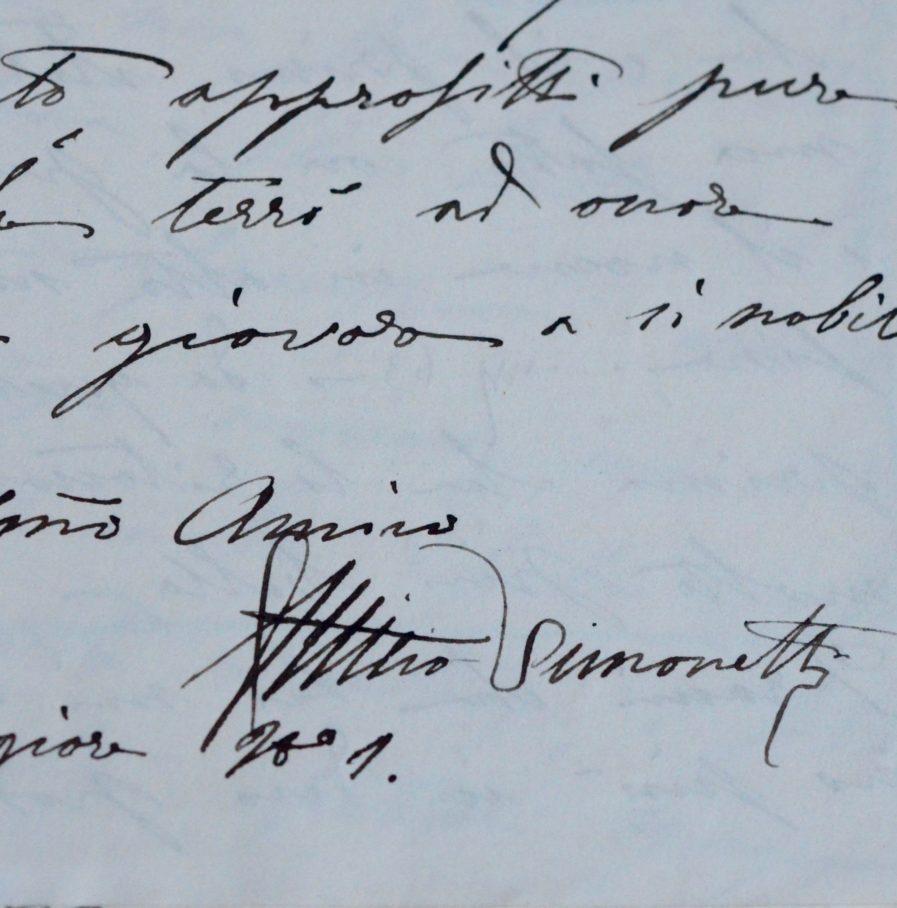 to approfitti pure
terrò ad onore
giovare a sì nobil
Amico
Attilio Simonetti
giore 1.